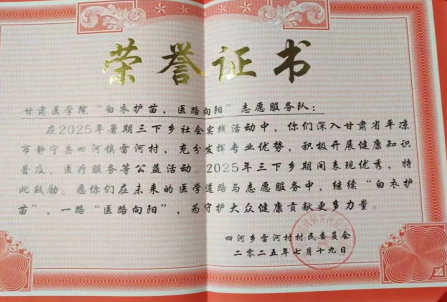 荣誉证书
甘肃医学院“白衣护苗，医路向阳”志愿服务队：
在2025年暑期三下乡社会实践活动中，你们深入甘肃省平凉
市静宁县四河镇雷河村，充分发挥专业优势，积极开展健康知识
普及、医疗服务等公益活动。2025年三下乡期间表现优秀，特
此鼓励。愿你们在未来的医学道路与志愿服务中，继续“白衣护
苗”，一路“医路向阳”，为守护大众健康贡献更多力量。
四河乡雷河村村民委员会
二零二五年七月十九日